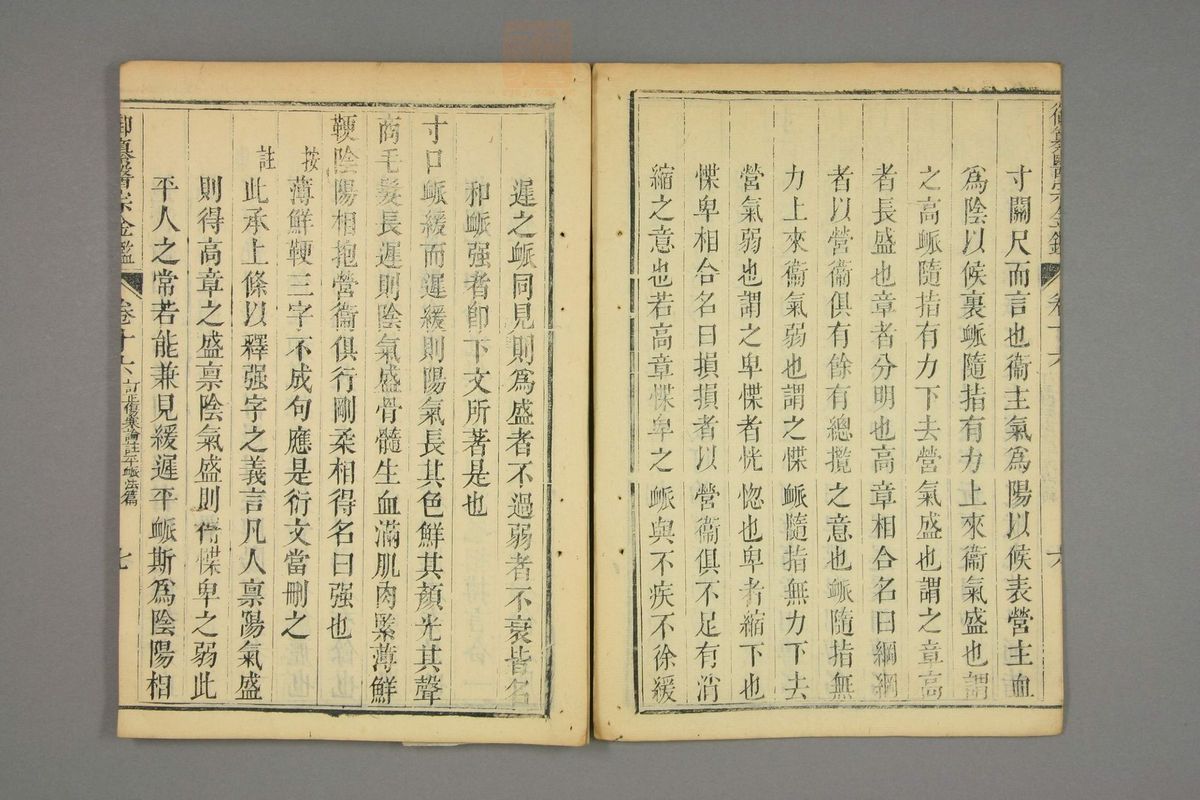 御纂醫宗金鑑 卷十六 六
寸關尺而言也衞主氣爲陽以候表營主血
爲陰以候裏衇隨指有力上來衞氣盛也謂
之高衇隨指有力下去營氣盛也謂之章高
者長盛也章者分明也高章相合名曰綱綱
者以營衞俱有餘有總攬之意也衇隨指無
力上來衞氣弱也謂之惵衇隨指無力下去
營氣弱也謂之卑惵者恍惚也卑者縮下也
惵卑相合名曰損損者以營衞俱不足有消
縮之意也若高章惵卑之衇與不疾不徐緩
遲之衇同見則爲盛者不過弱者不衰皆名
和衇强者卽下文所著是也
寸口衇緩而遲緩則陽氣長其色鮮其顏光其聲
商毛髮長遲則陰氣盛骨髓生血滿肌肉緊薄鮮
鞕陰陽相抱營衞俱行剛柔相得名曰强也
按薄鮮鞕三字不成句應是衍文當刪之
註此承上條以釋强字之義言凡人禀陽氣盛
則得高章之盛禀陰氣盛則得惵卑之弱此
平人之常若能兼見緩遲平衇斯爲陰陽相
御纂醫宗金鑑 卷十六 訂正傷寒論註平衇法篇 七